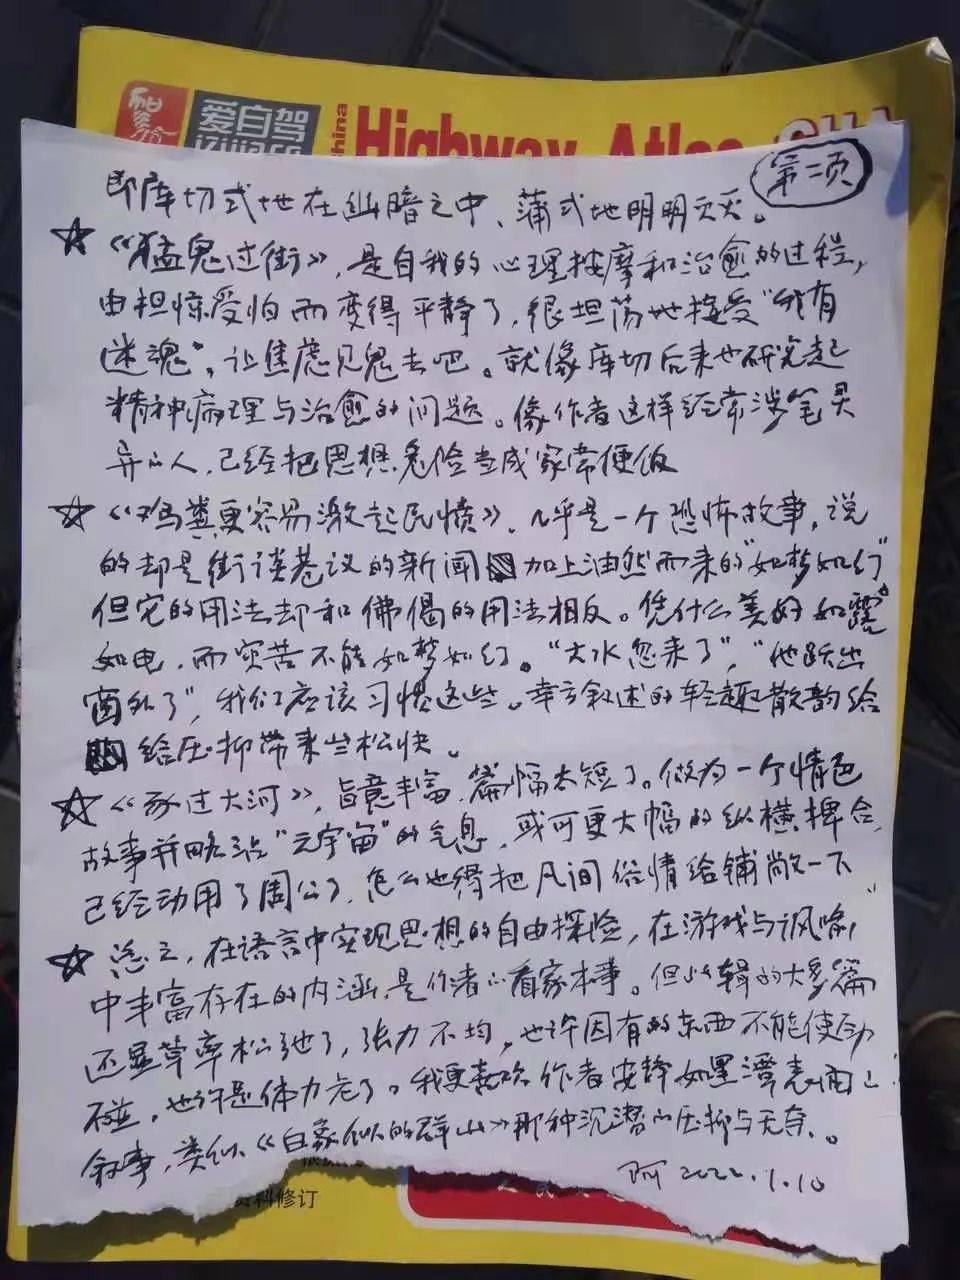 爱自驾
China
Highway Atlas
第二页
即库切式地在幽暗之中、蒲式地明明灭灭。
☆《猛鬼过街》,是自我的心理按摩和治愈的过程,
由担惊受怕而变得平静了,很坦荡地接受“我有
迷魂”,让焦虑见鬼去吧。就像库切后来也研究起
精神病理与治愈的问题。像作者这样经常涉笔灵
异的人,已经把思想危险当成家常便饭
☆《鸡粪更容易激起民愤》,几乎是一个恐怖故事,说
的却是街谈巷议的新闻 加上油然而来的“如梦如幻”
但它的用法却和佛偈的用法相反。凭什么美好如露
如电,而灾苦不能如梦如幻。“大水忽来了”,“他跃出
窗外了”,我们应该习惯这些。幸亏叙述的轻趣散韵给
给压抑带来些松快。
☆《豕过大河》,旨意丰富,篇幅太短了。做为一个情色
故事并略沾“元宇宙”的气息,或可更大幅的纵横捭合,
已经动用了周公了,怎么也得把凡间俗情给铺敞一下
☆ 总之,在语言中实现思想的自由探险,在游戏与讽喻
中丰富存在的内涵,是作者的看家本事。但此辑的大多篇
还显草率松弛了,张力不均,也许因有的东西不能使劲
碰,也许是体力老了。我更喜欢作者安静如墨潭表面的
叙事,类似《白象似的群山》那种沉潜的压抑与无奈。
阿 2022.1.10
资料修订